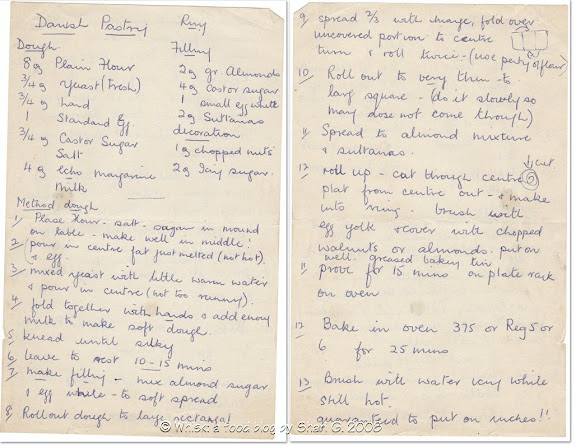 Danish Pastry Ring
Dough
8 g Plain Flour
3/4 g Yeast (Fresh)
3/4 g Lard
1 Standard Egg
3/4 g Castor Sugar
Salt
4 g echo margarine
Milk
Filling
2 g gr. Almonds
4 g Castor sugar
1 small egg white
2 g Sultanas
decoration
1 g chopped nuts
2 g Icing sugar.
Method dough
1/ Place flour - salt - sugar in mound
on table - make well in middle!
2/ pour in centre fat just melted (not hot)
& egg.
3/ mixed yeast with little warm water
& pour in centre (not too runny).
4/ fold together with hands & add enough
milk to make soft dough.
5 knead until silky
6 leave to rest 10-15 mins
7 make filling - mix almond sugar
& egg white - to soft spread
8 Roll out dough to large rectangal
9 spread 2/3 with marge, fold over
uncovered portion to centre
turn & roll twice - (use penty of flour)
10 Roll out to very thin - to
large square - (do it slowly so
marg dose not come though)
11 Spread to almond mixture
& sultanas.
12 roll up - cut through centre
cut
plat from centre out - & make
into ring. brush with
egg yolk & cover with chopped
walnuts or almonds. put on
well greased baking tin
11 prove for 15 mins on plate rack
on oven
12 Bake in oven 375 or Reg 5 or
6 for 25 mins
13 Brush with water icing while
still hot.
guaranteed to put on inches!!
© Whisk: a food blog by Shari G. 2008